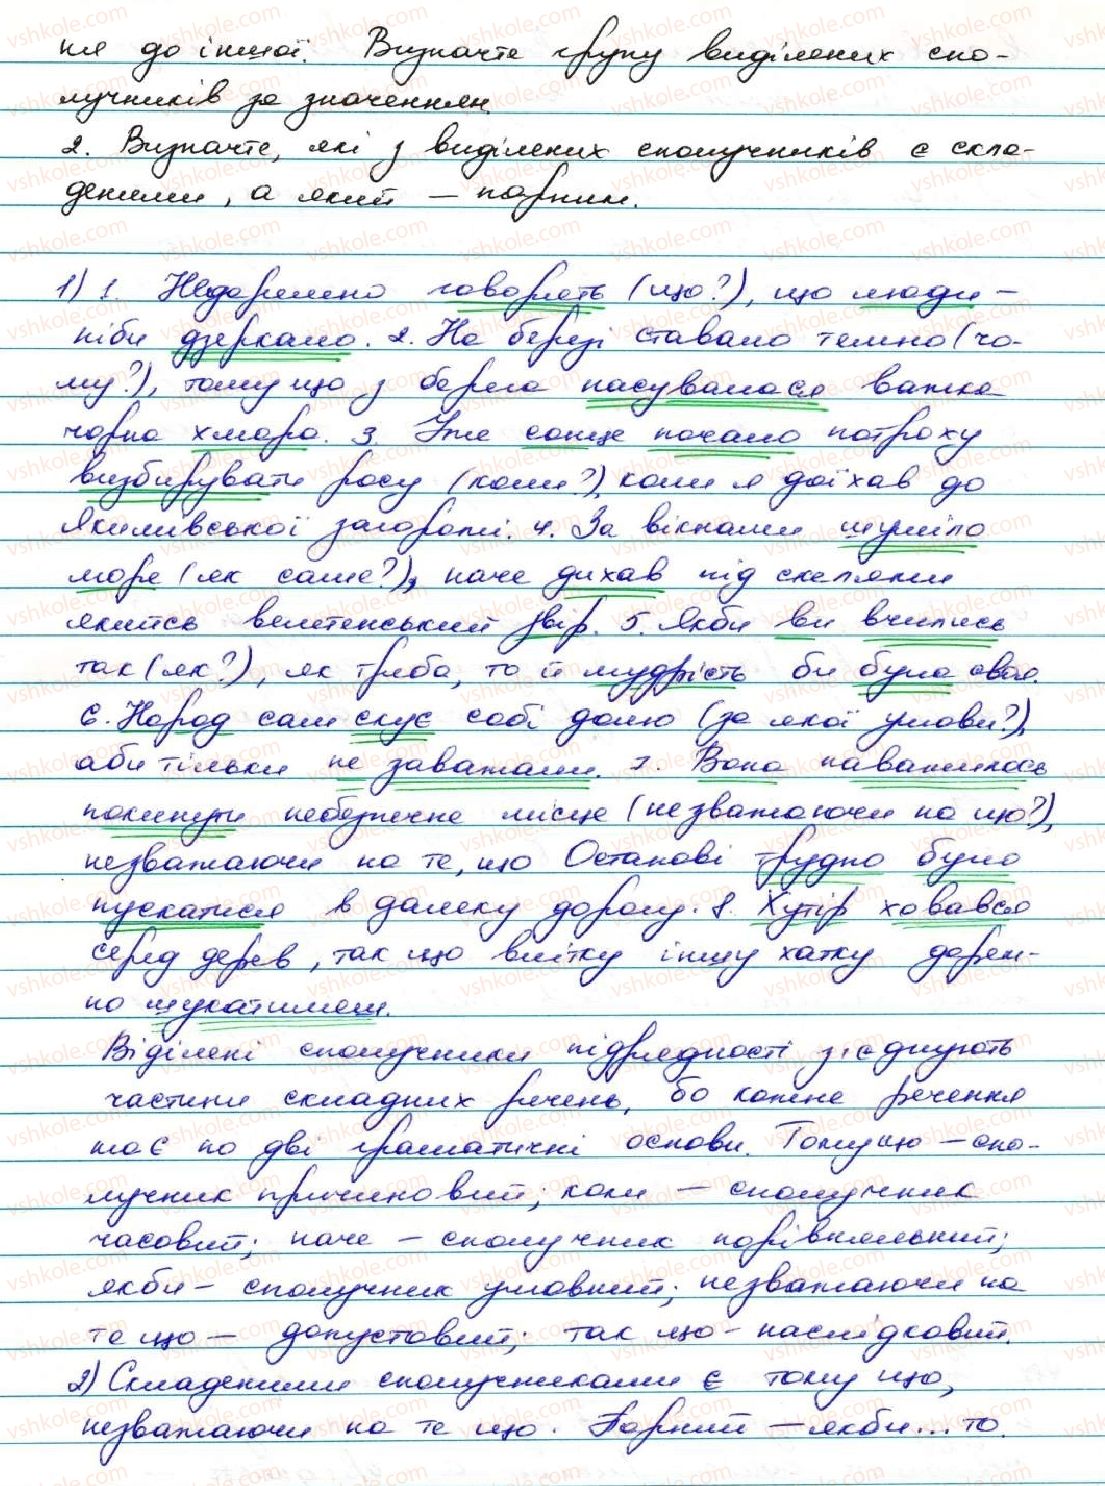 ня до іншої. Визначте групу виділених спо-
лучників за значенням.
2. Визначте, які з виділених сполучників є скла-
деними, а який – парним.
1) 1. Недаремно говорять (що?), що люди –
ніби дзеркало. 2. На березі ставало темно (чо-
му?), тому що з берега насувалася важка
чорна хмара. 3. Уже сонце почало потроху
визбирувати росу (коли?), коли я доїхав до
Якимівської загороті. 4. За вікнами шуміло
море (як саме?), наче дихав під скелями
якийсь велетенський звір. 5. Якби ви вчились
так (як?), як треба, то й мудрість би була своя.
6. Народ сам скує собі долю (за якої умови?),
аби тільки не заважали. 7. Вона наважилась
покинути небезпечне місце (незважаючи на що?),
незважаючи на те, що Остапові трудно було
пускатися в далеку дорогу. 8. Хутір ховався
серед дерев, так що влітку іншу хатку дарем-
но шукатимеш.
Віділені сполучники підрядності з'єднують
частини складних речень, бо кожне речення
має по дві граматичні основи. Тому що – спо-
лучник причиновий; коли – сполучник
часовий; наче – сполучник порівняльний;
якби – сполучник умовний; незважаючи на
те що – допустовий; так що – наслідковий.
2) Складеними сполучниками є тому що,
незважаючи на те що. Парний – якби... то.